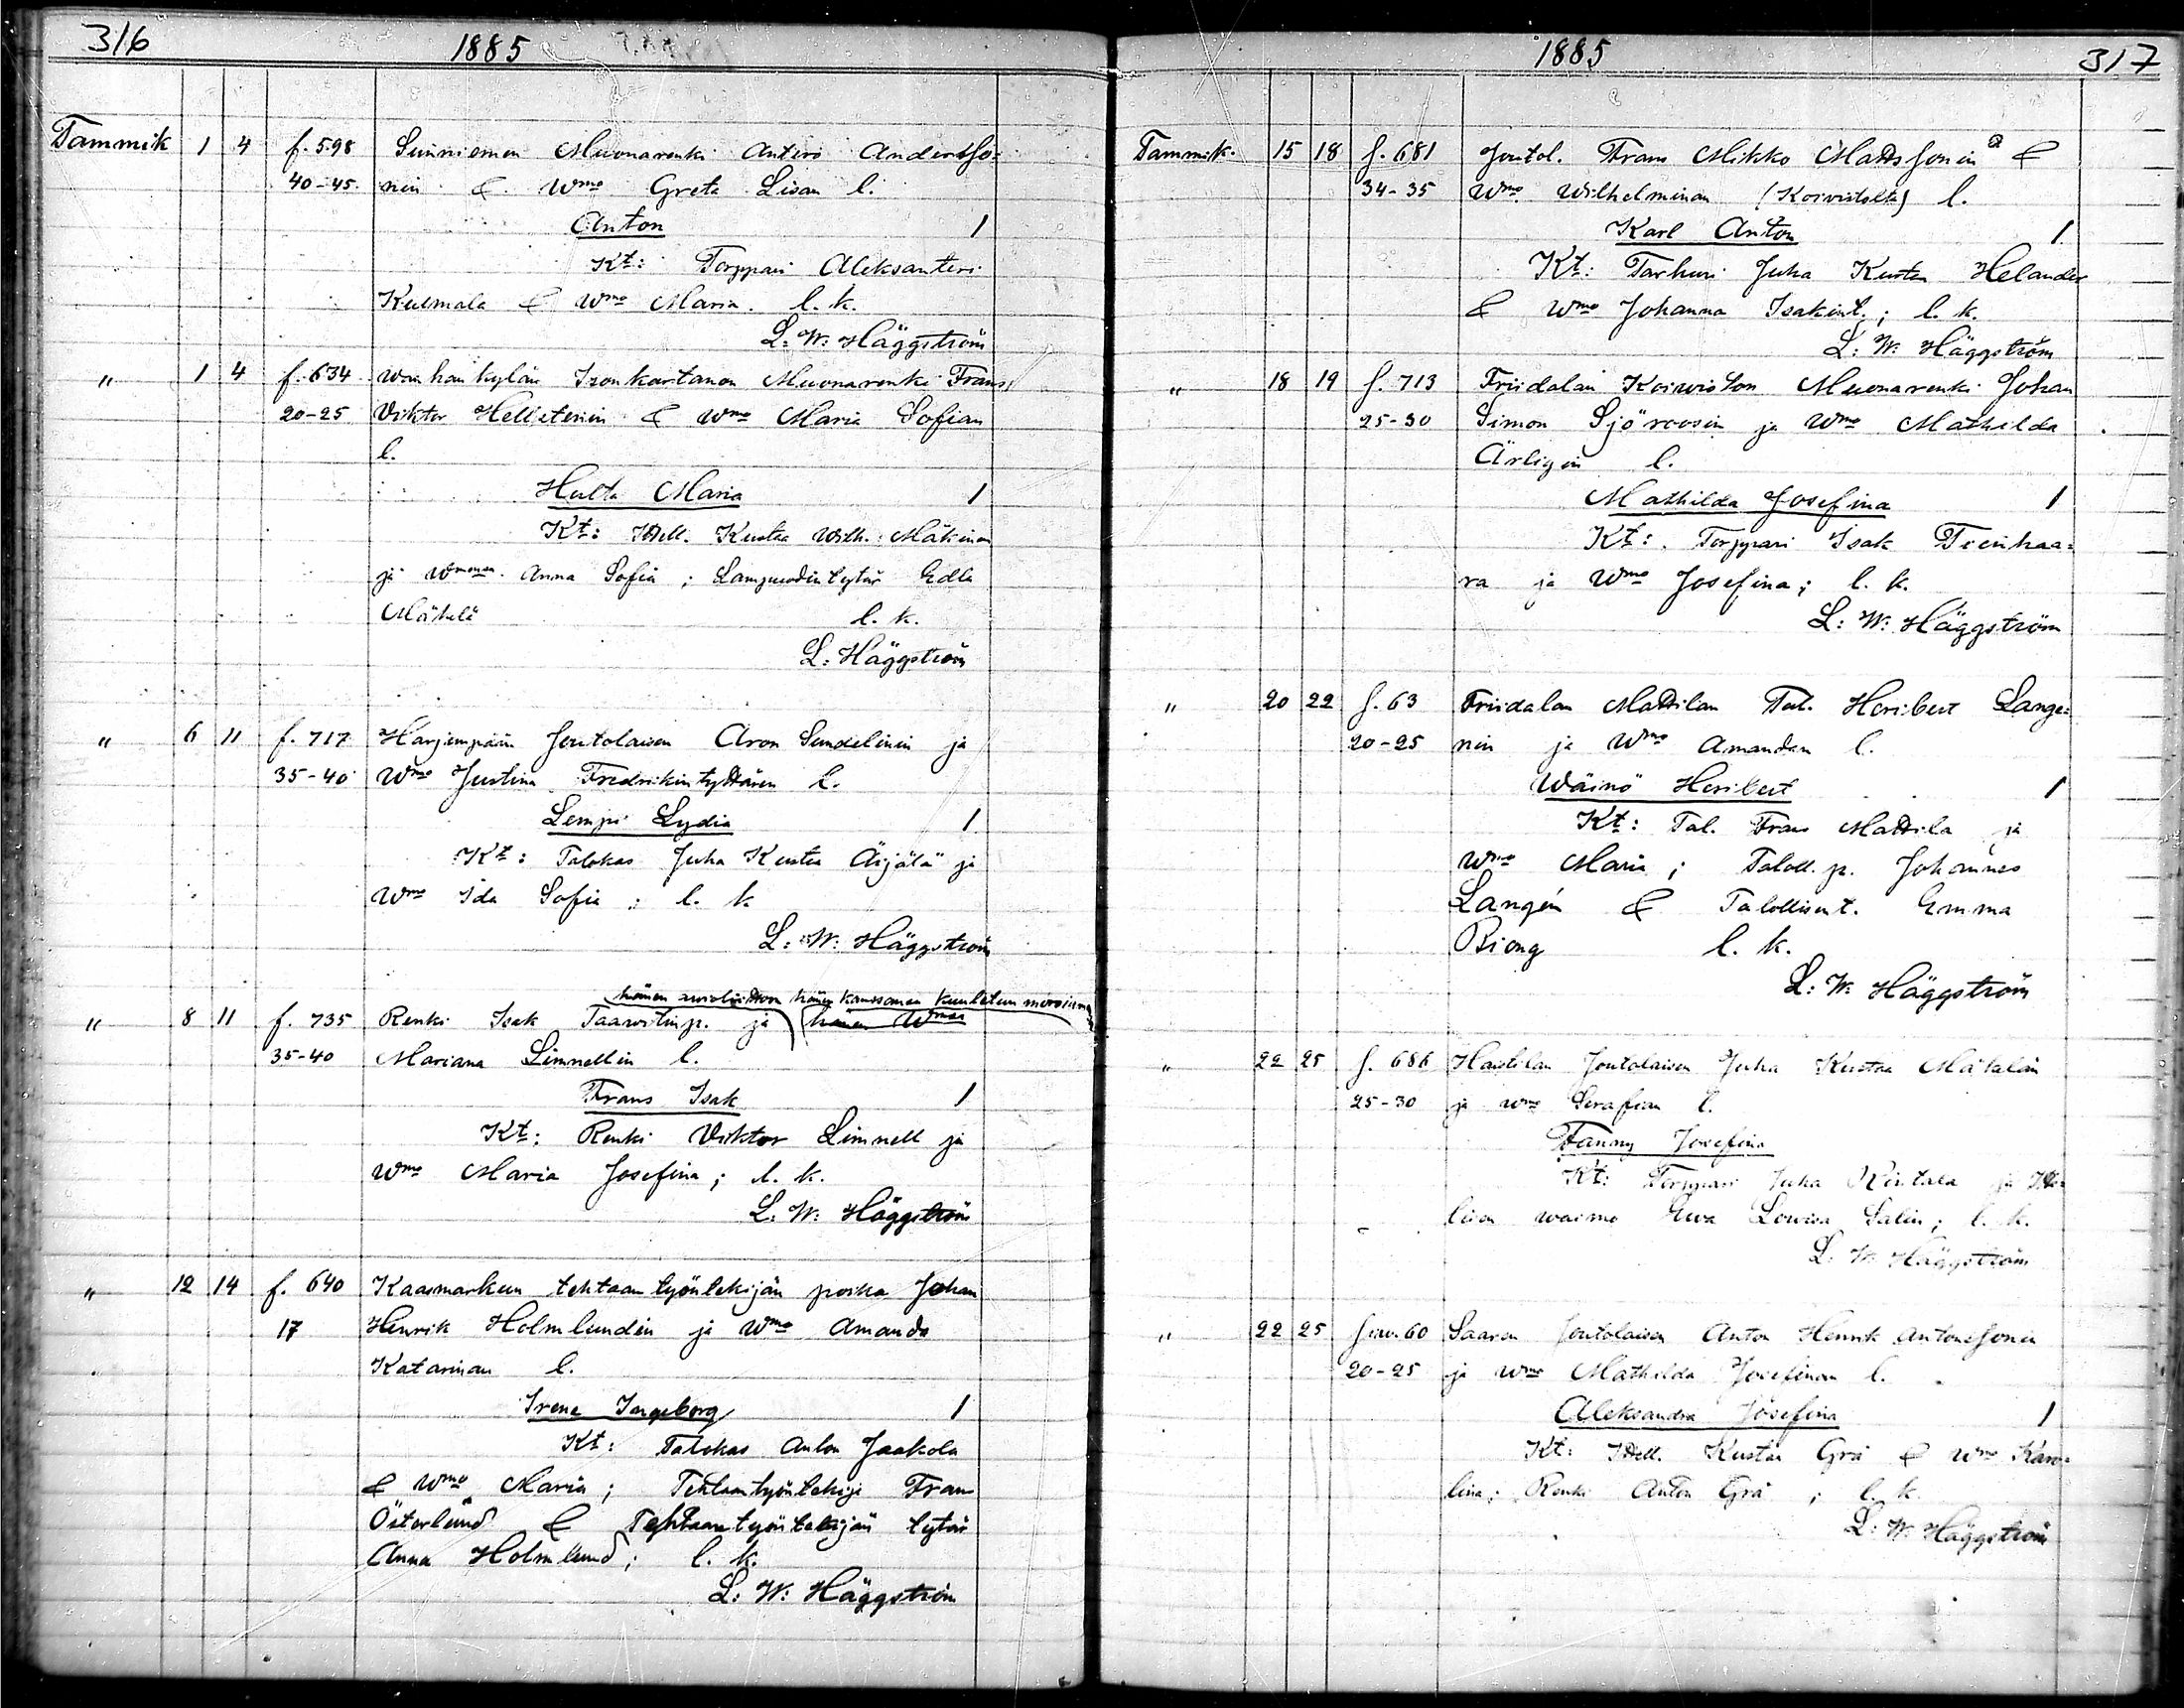 316
1885
Tammik 1 4 f. 598 Sunniemen Muonarenki Anteri Andersso=
40-45 nin & Wmo Greta Lisan l.
Anton 1
Kt: Torppari Aleksanteri
Kulmala & Wmo Maria. l. k.
L. W. Häggström
" 1 4 f. 634 Wanhankylän Isonkartanon Muonarenki Frans
20-25 Viktor Helletenin & Wmo Maria Sofian
l.
Hulta Maria 1
Kt: Itsell. Kustaa Wilh. Mäkinen
ja Wmonsa Anna Sofia; Lampuodin tytär Edla
Mäkelä l. k.
L. Häggström
" 6 11 f. 717 Harjunpään Joutolaisen Aron Sundelinin ja
35-40 Wmo Justina Fredrikintyttären l.
Lempi Lydia 1
Kt: Talokas Juha Kustaa Äijälä ja
Wmo Ida Sofia; l. k.
L. W. Häggström
hänen avioliittoon hänen kanssansa kuulutun morsiamen
" 8 11 f. 735 Renki Isak Taavetinp. ja hänen Wmonsa
35-40 Mariana Limnellin l.
Frans Isak 1
Kt: Renki Viktor Limnell ja
Wmo Maria Josefina; l. k.
L. W. Häggström
" 12 14 f. 640 Kaasmarkun tehtaan työntekijän poika Johan
17 Henrik Holmlundin ja Wmo Amanda
Katarinan l.
Irene Ingeborg 1
Kt: Talokas Anton Jaakola
& Wmo Maria; Tehtaantyöntekijä Frans
Österlund & Tehtaantyöntekijän tytär
Anna Holmlund; l. k.
L. W. Häggström
1885
317
Tammik. 15 18 f. 681 Joutol. Frans Mikko Mattssonin &
34-35 Wmo Wilhelminan (Koivistolta) l.
Karl Anton 1
Kt: Tarhuri Juha Kustaa Helander
& Wmo Johanna Isakint.; l. k.
L. W. Häggström
" 18 19 f. 713 Friidalan Koiwiston Muonarenki Johan
25-30 Simon Sjöroosin ja Wmo Mathilda
Ärligin l.
Mathilda Josefina 1
Kt: Torppari Isak Tienhaa=
ra ja Wmo Josefina; l. k.
L. W. Häggström
" 20 22 f. 63 Friidalan Mattilan Tal. Heribert Lange=
20-25 nin ja Wmo Amandan l.
Wäinö Heribert 1
Kt: Tal. Frans Mattila ja
Wmo Maria; Taloll. p. Johannes
Langén & Talollisent. Emma
Biong l. k.
L. W. Häggström
" 22 25 f. 686 Haistilan Joutolaisen Juha Kustaa Mäkelän
25-30 ja Wmo Serafian l.
Fanny Josefina
Kt: Torppari Juha Rintala ja Itse=
lisen waimo Ewa Lowisa Salin; l. k.
L. W. Häggström
" 22 25 60 Saaren Joutolaisen Anton Henrik Antonssonin
20-25 ja Wmo Mathilda Josefinan l.
Aleksandra Josefina 1
Kt: Itsell. Kustaa Grå & Wmo Karo=
lina; Renki Anton Grå; l. k.
L. W. Häggström